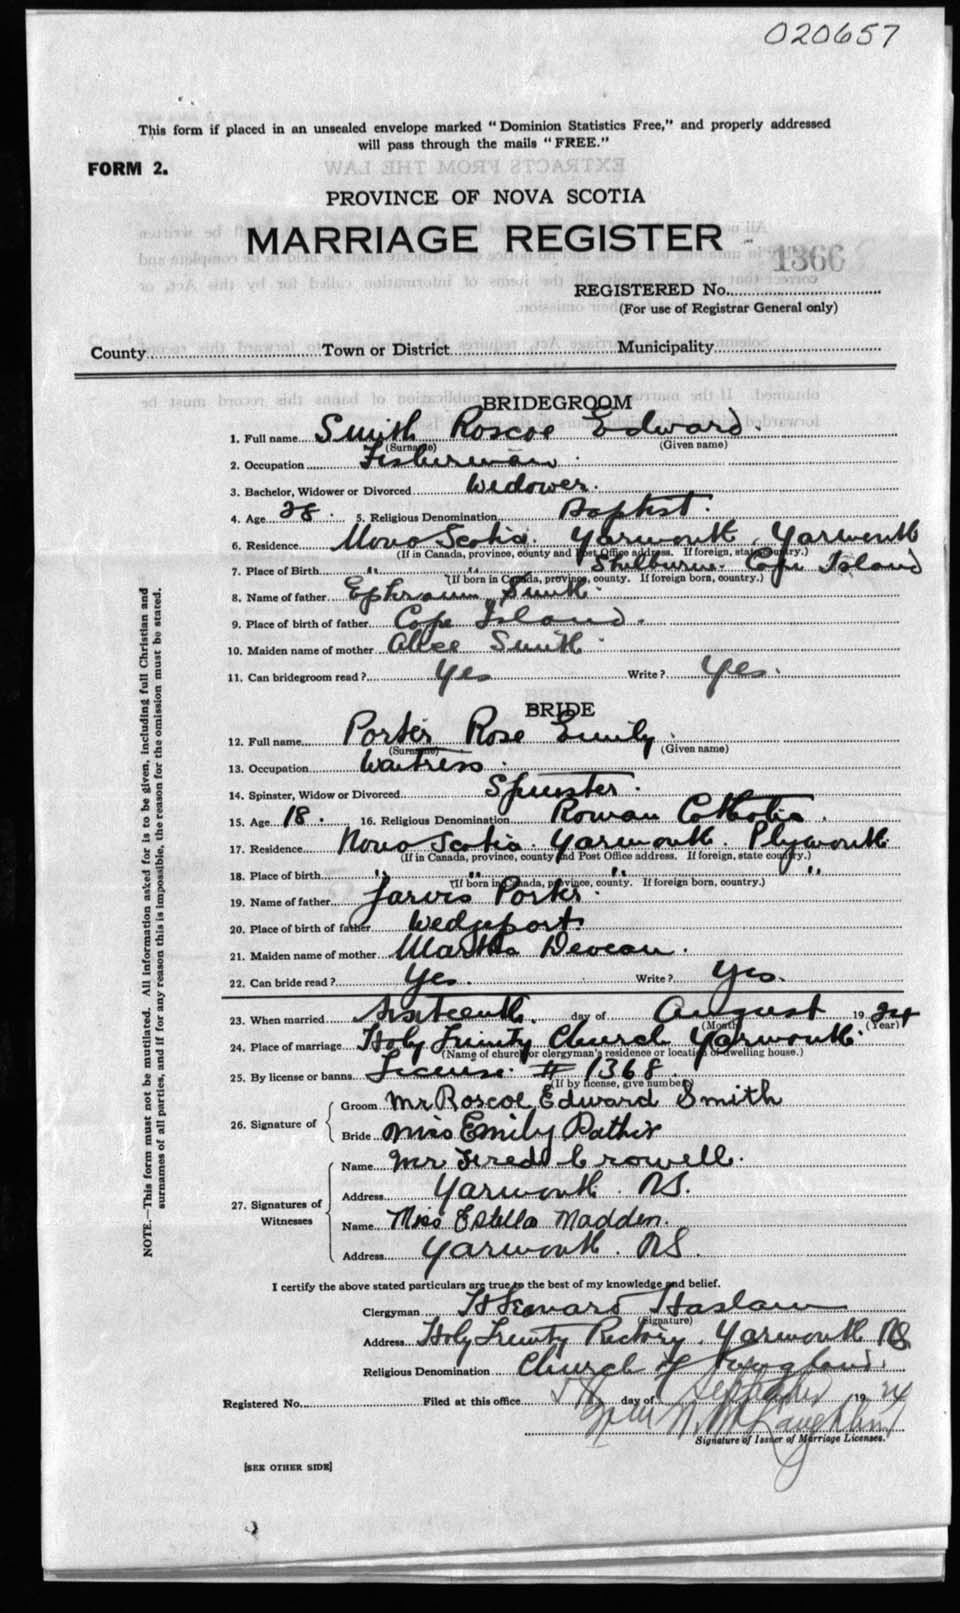 020657
This form if placed in an unsealed envelope marked "Dominion Statistics Free," and properly addressed
will pass through the mails "FREE."
FORM 2.
EXTRACTS FROM THE LAW
PROVINCE OF NOVA SCOTIA
MARRIAGE REGISTER
1366
REGISTERED No.
(For use of Registrar General only)
County Town or District Municipality
BRIDEGROOM
1. Full name Smith Roscoe Edward.
(Surname) (Given name)
2. Occupation Fisherman.
3. Bachelor, Widower or Divorced Widower.
4. Age 28. 5. Religious Denomination Baptist.
6. Residence Nova Scotia. Yarmouth. Yarmouth
(If in Canada, province, county and Post Office address. If foreign, state country.)
7. Place of Birth " " Shelburne. Cape Island
(If born in Canada, province, county. If foreign born, country.)
8. Name of father Ephraim Smith.
9. Place of birth of father Cape Island.
10. Maiden name of mother Allee Smith.
11. Can bridegroom read? Yes Write? Yes.
BRIDE
12. Full name Porter Rose Emily.
(Surname) (Given name)
13. Occupation Waitress.
14. Spinster, Widow or Divorced Spinster.
15. Age 18. 16. Religious Denomination Roman Catholic.
17. Residence Nova Scotia. Yarmouth. Plymouth.
(If in Canada, province, county and Post Office address. If foreign, state country.)
18. Place of birth " " " "
(If born in Canada, province, county. If foreign born, country.)
19. Name of father Jarvis Porter.
20. Place of birth of father Wedgeport.
21. Maiden name of mother Martha Deveau.
22. Can bride read? Yes. Write? Yes.
23. When married Sixteenth. day of August 1924
(Month) (Year)
24. Place of marriage Holy Trinity Church Yarmouth.
(Name of church or clergyman's residence or location of dwelling house.)
25. By license or banns License. # 1368.
(If by license, give number)
26. Signature of
Groom Mr Roscoe Edward Smith
Bride Miss Emily Pothier
27. Signatures of Witnesses
Name Mr Fired Crowell.
Address Yarmouth. NS.
Name Miss Estella Madden.
Address Yarmouth. NS.
I certify the above stated particulars are true to the best of my knowledge and belief.
Clergyman Haslam
(Signature)
Address Holy Trinity Rectory. Yarmouth NS
Religious Denomination Church of England.
Registered No. Filed at this office 5th day of September 1924
McLaughlin
Signature of Issuer of Marriage Licenses.
[SEE OTHER SIDE]
NOTE.—This form must not be mutilated. All information asked for is to be given, including full Christian and
surnames of all parties, and if for any reason this is impossible, the reason for the omission must be stated.